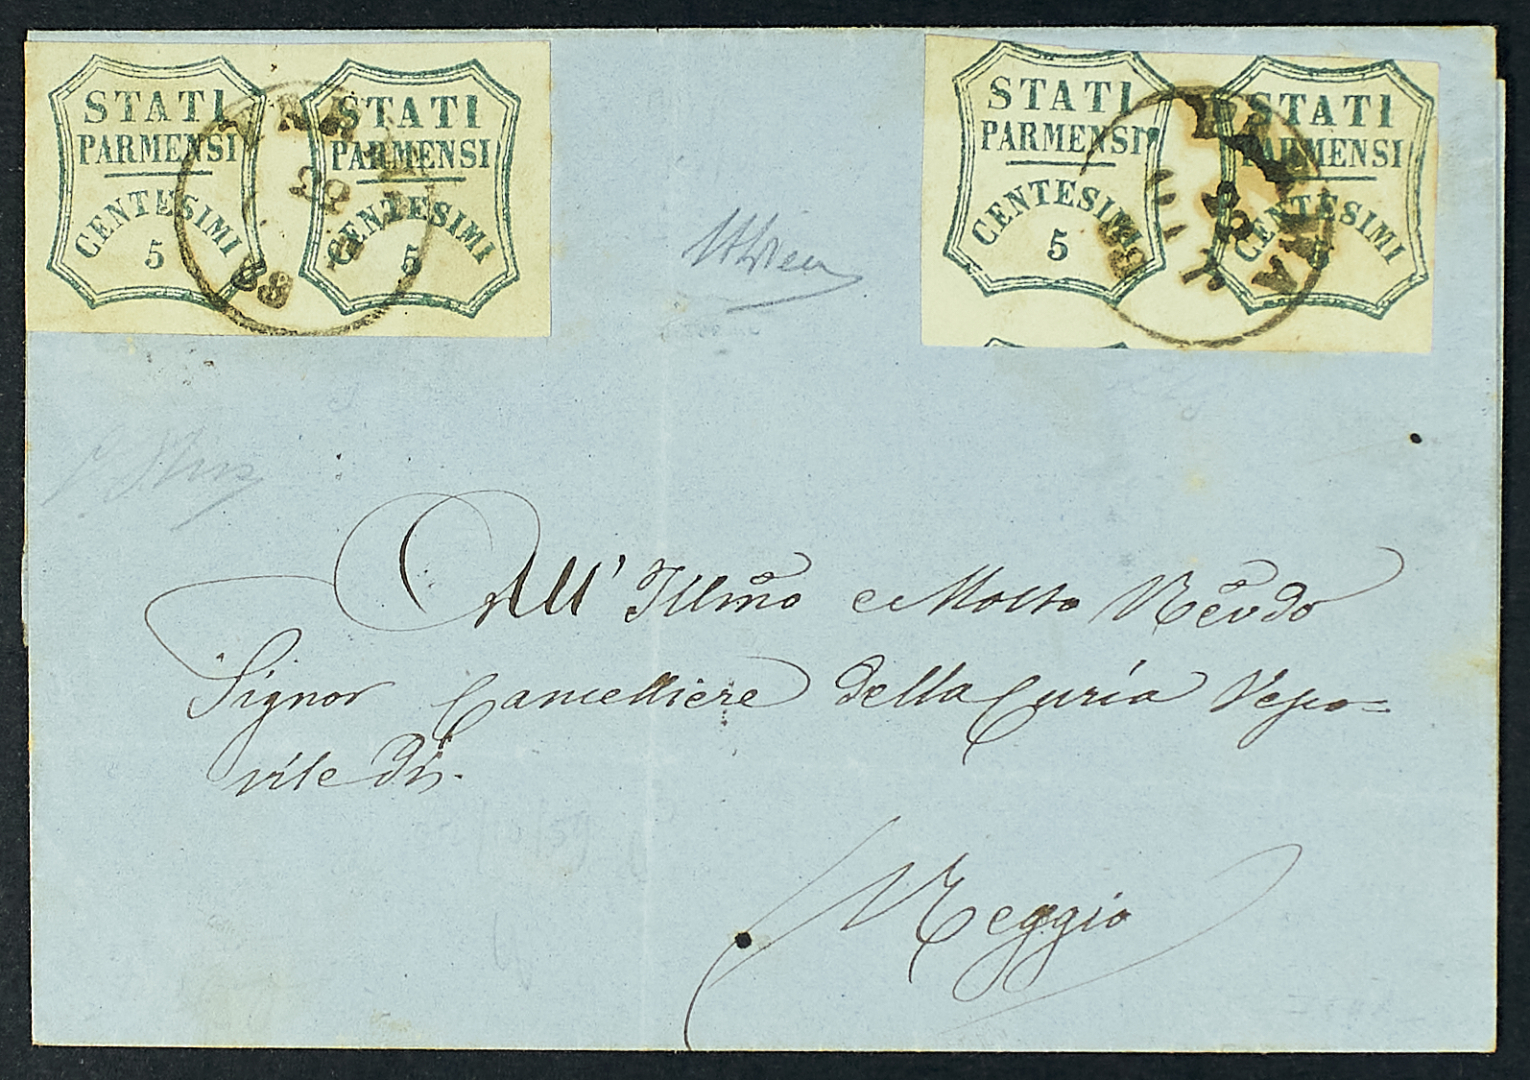 STATI STATI
PARMENSI PARMENSI
CENTESIMI CENTESIMI
5 5
STATI STATI
PARMENSI PARMENSI
CENTESIMI CENTESIMI
5
PARMA
All' Illmo e Molto Revdo
Signor Cancelliere della Curia Vesco=
vile di
Reggio